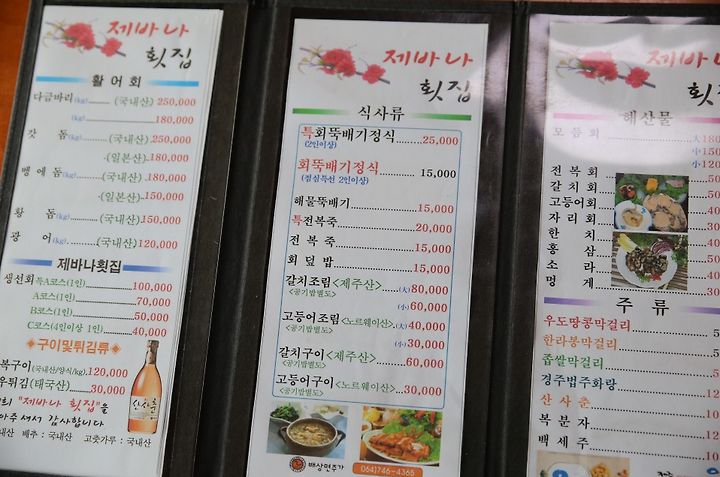 제바나
횟집
활어회
다금바리(kg) (국내산) 250,000
(kg) 180,000
갓 돔(kg) (국내산) 250,000
(일본산) 180,000
뱅에돔(kg) (국내산) 180,000
(일본산) 150,000
황 돔(kg) (국내산) 150,000
광 어(kg) (국내산) 120,000
제바나횟집
생선회 특A코스(1인) 100,000
A코스(1인) 70,000
B코스(1인) 50,000
C코스(4인이상 1인) 40,000
구이및튀김류
복구이(국내산/양식/kg) 120,000
우튀김(태국산) 30,000
희 "제바나 횟집"을
아주셔서 감사합니다
내산 배추 : 국내산 고춧가루 : 국내산
산사춘
제바나
횟집
식사류
특회뚝배기정식 25,000
(2인이상)
회뚝배기정식 15,000
(점심특선 2인이상)
해물뚝배기 15,000
특전복죽 20,000
전 복 죽 15,000
회 덮 밥 15,000
갈치조림<제주산> (大) 80,000
<공기밥별도> (小) 60,000
고등어조림<노르웨이산> (大) 40,000
<공기밥별도> (小) 30,000
갈치구이<제주산> 60,000
<공기밥별도>
고등어구이<노르웨이산> 30,000
<공기밥별도>
배상면주가
064)746-4365
제바나
횟집
해산물
모 듬 회 大)180
小)150
전 복 회 大)120
小)
갈 치 회
고등어회
자 리 회
한 치
홍 삼
소 라
멍 게
주 류
우도땅콩막걸리
한라봉막걸리
좁쌀막걸리
경주법주화랑
산 사 춘
복 분 자
백 세 주